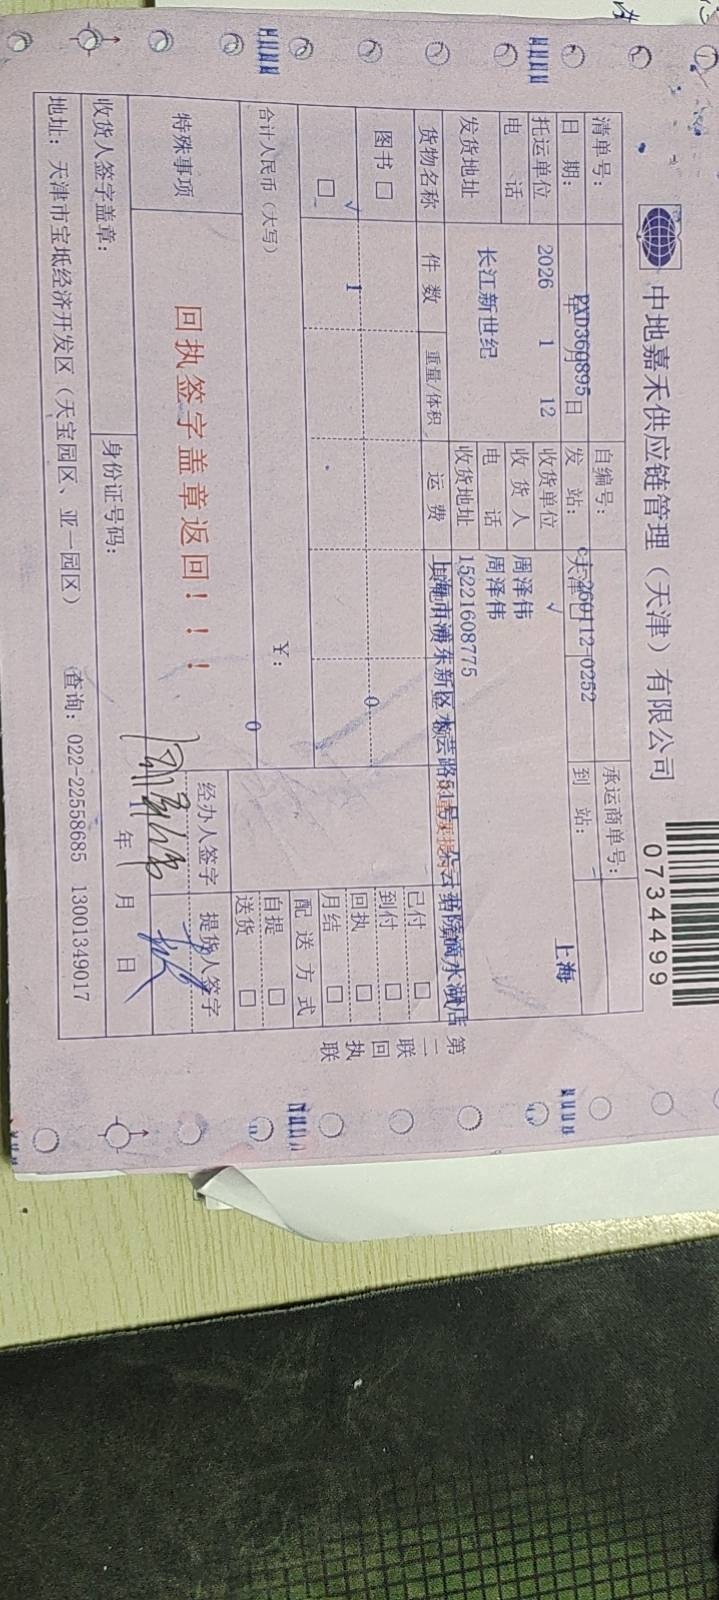 中地嘉禾供应链管理（天津）有限公司
0734499
清单号： PXD360895 自编号： 260112-0252 承运商单号：
日 期： 2026 年 1 月 12 日 发 站： 天津 到 站： 上海
托运单位 长江新世纪 收货单位 √
电 话 收 货 人 周泽伟
发货地址 电 话 周泽伟
收货地址 15221608775
货物名称 件 数 重量/体积 运 费 上海市浦东新区
图书 □ √ 1 0
□
合计人民币（大写） ￥： 0
已付 □
到付 □
回执 □
月结 □
配 送 方 式
自提 □
送货 □
特殊事项 回执签字盖章返回！！！ 经办人签字 提货人签字
收货人签字盖章： 身份证号码： 年 月 日
地址：天津市宝坻经济开发区（天宝园区、亚一园区） 查询：022-22558685 13001349017
第二联 回执联